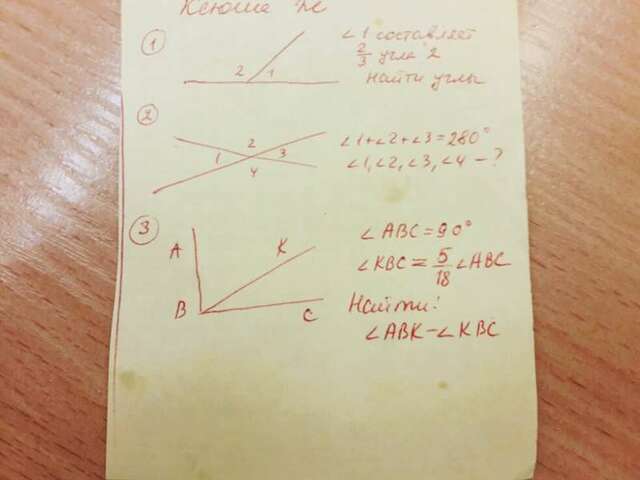 Ксюше ДС
1
∠1 составляет
2/3 угла 2
найти углы
2 1
2
∠1+∠2+∠3=280°
∠1,∠2,∠3,∠4 – ?
2
1 3
4
3
∠ABC=90°
∠KBC=5/18∠ABC
Найти:
∠ABK–∠KBC
A K
B C